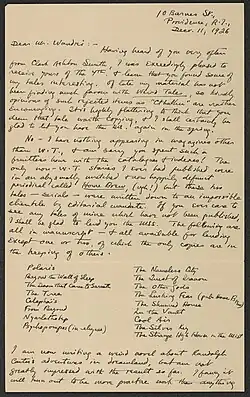 10 Barnes St.,
Providence, R.I.,
Decr. 11, 1926
Dear Mr. Wandrei:-
Having heard of you very often
from Clark Ashton Smith, I was exceedingly pleased to
receive yours of the 7th, & learn that you found some of
my tales interesting. Of late my material has not
been finding much favour with Weird Tales, so kindly
opinions of such rejected things as "Cthulhu" are rather
encouraging. It is highly flattering to think that you
deem that tale worth copying, & I shall certainly be
glad to let you have the MS. again in the spring.
No - I have nothing appearing in magazines other
than W.T., so am sorry you spent such a
fruitless hour with the catalogues & indices! The
only non-W.T. stories I ever had published were
in an abysmally wretched & now happily defunct
periodical called Home Brew, (ugh!) but these two
tales - serials - were written down to an impossible
clientele by editorial mandate. If you ever care to
see any tales of mine which have not been published,
I shall be glad to lend you the MSS. The following are
all in manuscript & all available for lending
except one or two, of which the only copies are in
the keeping of others.
Polaris
Beyond the Wall of Sleep
The Doom that Came to Sarnath
The Tree
Celephaïs
From Beyond
Nyarlathotep
Psychopompos (in rhyme)
The Nameless City
The Quest of Iranon
The Other Gods
The Lurking Fear (pub. Home Brew)
The Shunned House
In the Vault
Cool Air
The Silver Key
The Strange High House in the Mist
I am now writing a weird novel about Randolph
Carter's adventures in dreamland, but am not
greatly impressed with the result so far. I fancy it
will turn out to be more practice work than anything